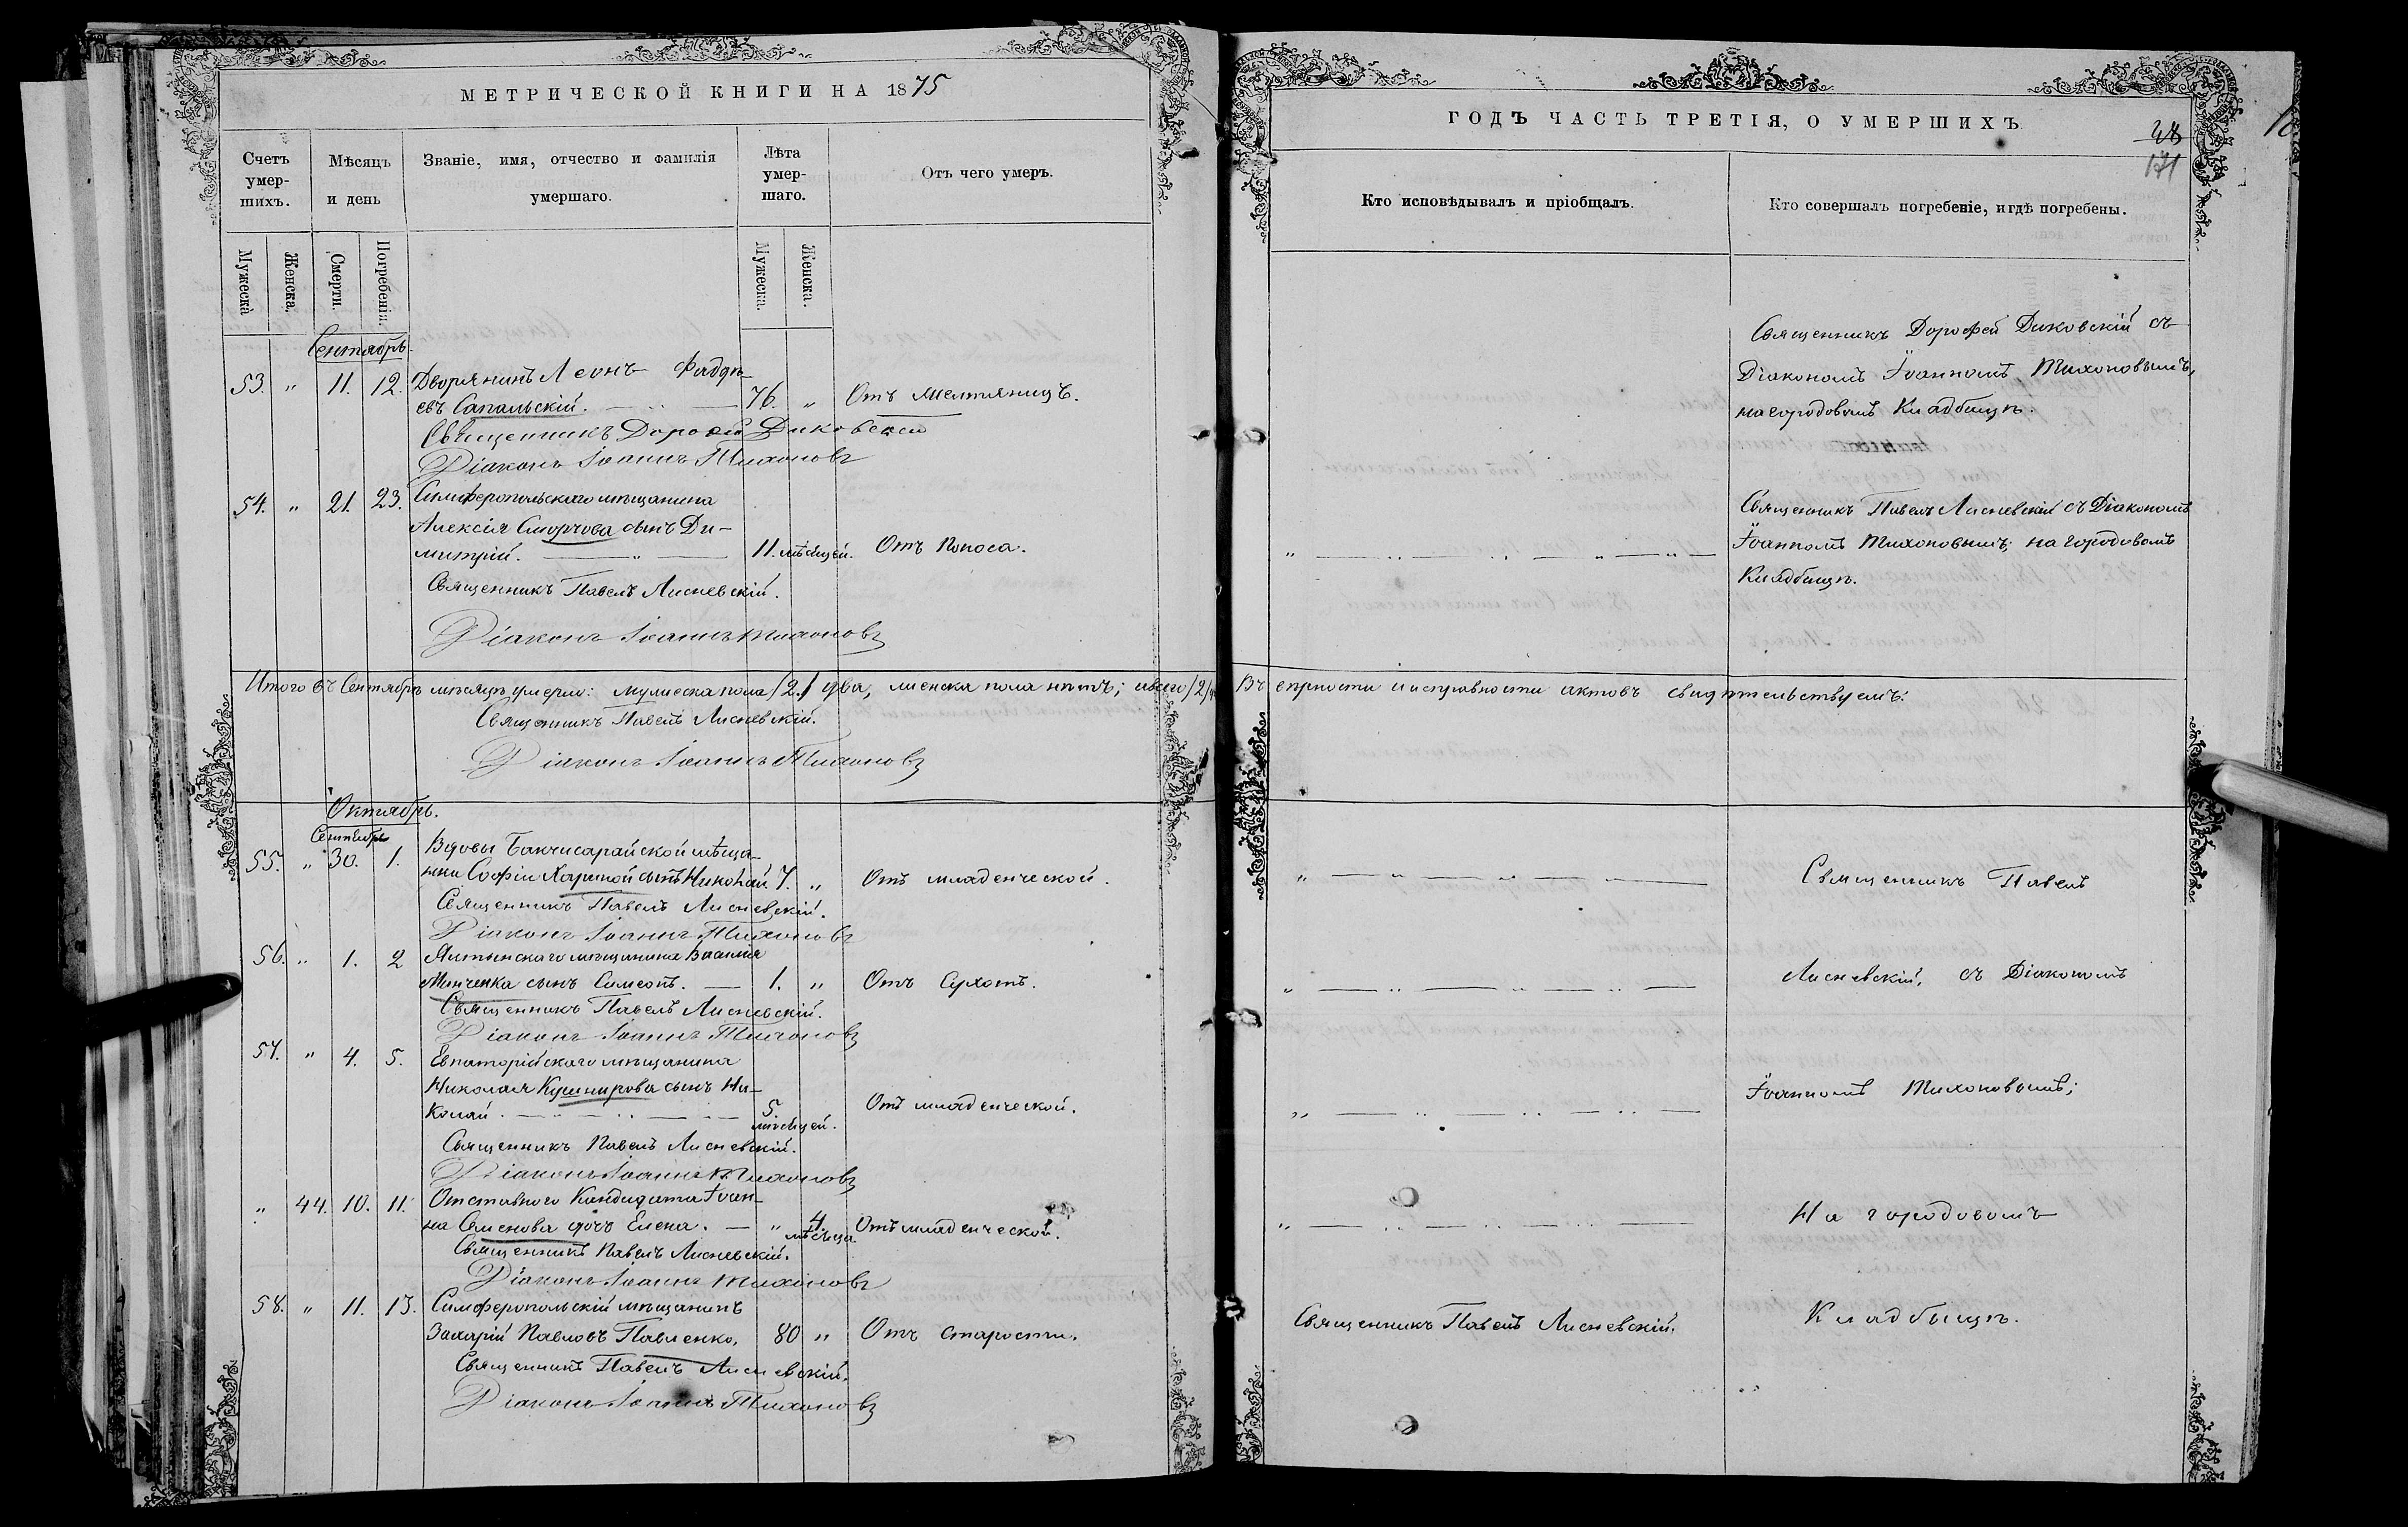 МЕТРИЧЕСКОЙ КНИГИ НА 1875
Счетъ умер-шихъ.
Мѣсяцъ и день
Званіе, имя, отчество и фамилія умершаго.
Лѣта умер-шаго.
Отъ чего умеръ.
Мужеска
Женска.
Смерти.
Погребенія.
Мужеска.
Женска.
Сентябрь.
53. " 11. 12. Дворянинъ Леонъ Фадде-
евъ Сапальскій. 76. " Отъ желтяницъ.
Священникъ Дорофей Диковский
Діаконъ Іоаннъ Тихоновъ
54. " 21. 23. Симферопольскаго мѣщанина
Алексія Сморчова сынъ Ди-
митрій. 11. мѣсяцей. Отъ Поноса.
Священникъ Павелъ Лисневскій.
Діаконъ Іоаннъ Тихоновъ
Итого въ Сентябрѣ мѣсяцѣ умерло: мужеска пола /2./ два, женска пола нѣтъ; всего /2/
Священникъ Павелъ Лисневскій.
Діаконъ Іоаннъ Тихоновъ
Октябрь.
Сентябрь
55. " 30. 1. Вдовы Бакчисарайской мѣща-
нки Софіи Хариной сынъ Николай 7. " Отъ младенческой.
Священникъ Павелъ Лисневскій.
Діаконъ Іоаннъ Тихоновъ
56. " 1. 2 Ялтынскаго мѣщанина Василія
Минченка сынъ Симеонъ. 1. " Отъ Сухотъ.
Священникъ Павелъ Лисневскій.
Діаконъ Іоаннъ Тихоновъ
57. " 4. 5. Евпаторійскаго мѣщанина
Николая Кушнирова сынъ Ни-
колай. 5. мѣсяцей. Отъ младенческой.
Священникъ Павелъ Лисневскій.
Діаконъ Іоаннъ Тихоновъ
" 44. 10. 11. Отставного Кандидата Іоан-
на Семенова дочь Елена. " 4 мѣсяца Отъ младенческой.
Священникъ Павелъ Лисневскій.
Діаконъ Іоаннъ Тихоновъ
58. " 11. 13. Симферопольскій мѣщанинъ
Захарій Павловъ Павленко. 80 " Отъ старости.
Священникъ Павелъ Лисневскій.
Діаконъ Іоаннъ Тихоновъ
ГОДЪ ЧАСТЬ ТРЕТІЯ, О УМЕРШИХЪ
171
Кто исповѣдывалъ и пріобщалъ.
Кто совершалъ погребеніе, и гдѣ погребены.
Священникъ Дорофей Диковскій съ
Діакономъ Іоанномъ Тихоновымъ,
на городовомъ Кладбищѣ.
Священникъ Павелъ Лисневскій съ Діакономъ
Іоанномъ Тихоновымъ; на городовомъ
Кладбищѣ.
Въ вѣрности и исправности актовъ свидѣтельствуемъ:
Священникъ Павелъ
Лисневскій, съ Діакономъ
Іоанномъ Тихоновымъ;
На городовомъ
Священникъ Павелъ Лисневскій.
Кладбищѣ.